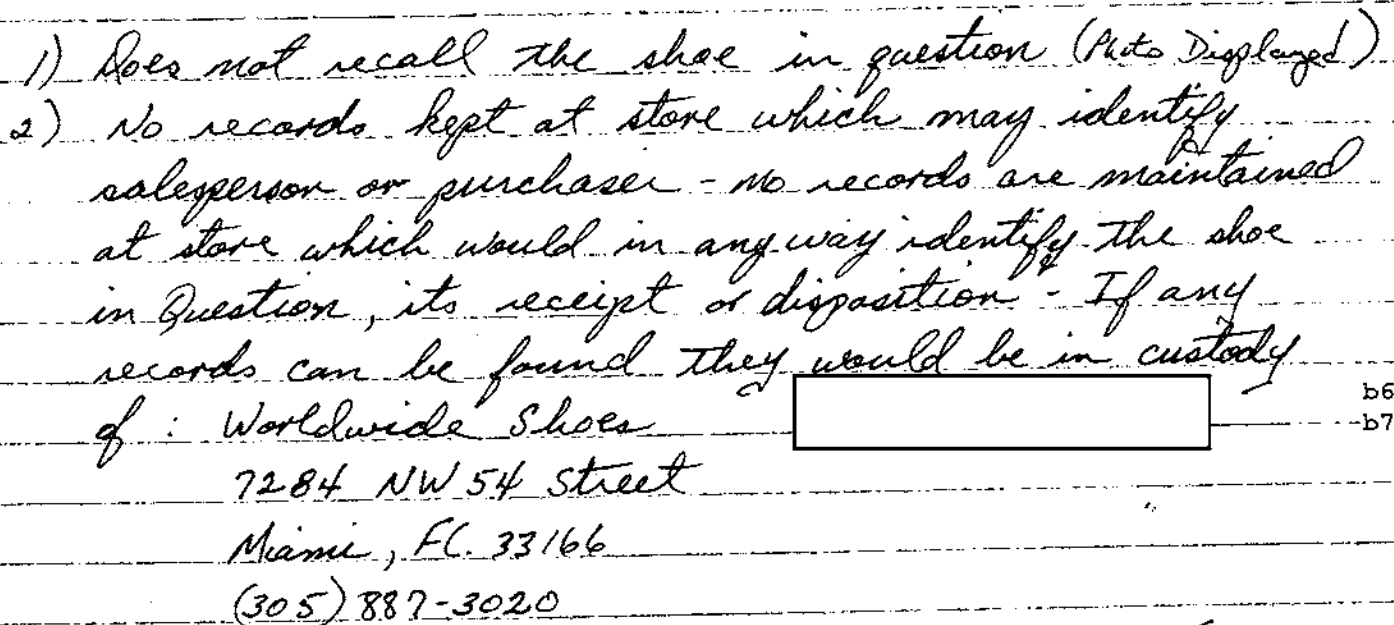 1) Does not recall the shoe in question (Photo Displayed)
2) No records kept at store which may identify
salesperson or purchaser - no records are maintained
at store which would in any way identify the shoe
in Question, its receipt or disposition - If any
records can be found they would be in custody
of : Worldwide Shoes
b6
b7
7284 NW 54 Street
Miami, Fl. 33166
(305) 887-3020